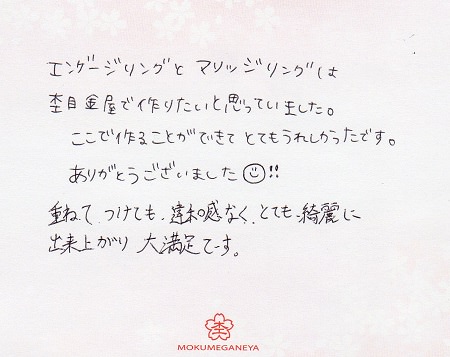 エンゲージリングと マリッジリングは
杢目金屋で作りたいと思っていました。
ここで作ることができて とてもうれしかったです。
ありがとうございました☺!!
重ねて つけても、違和感なく、とても 綺麗に
出来上がり 大満足です。
杢
MOKUMEGANEYA